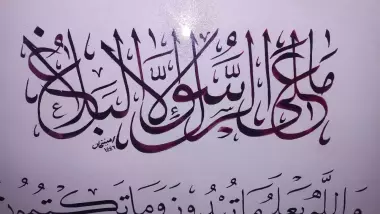 ما على الرسول إلا البلاغ
والله يعلم ما تبدون وما تكتمون